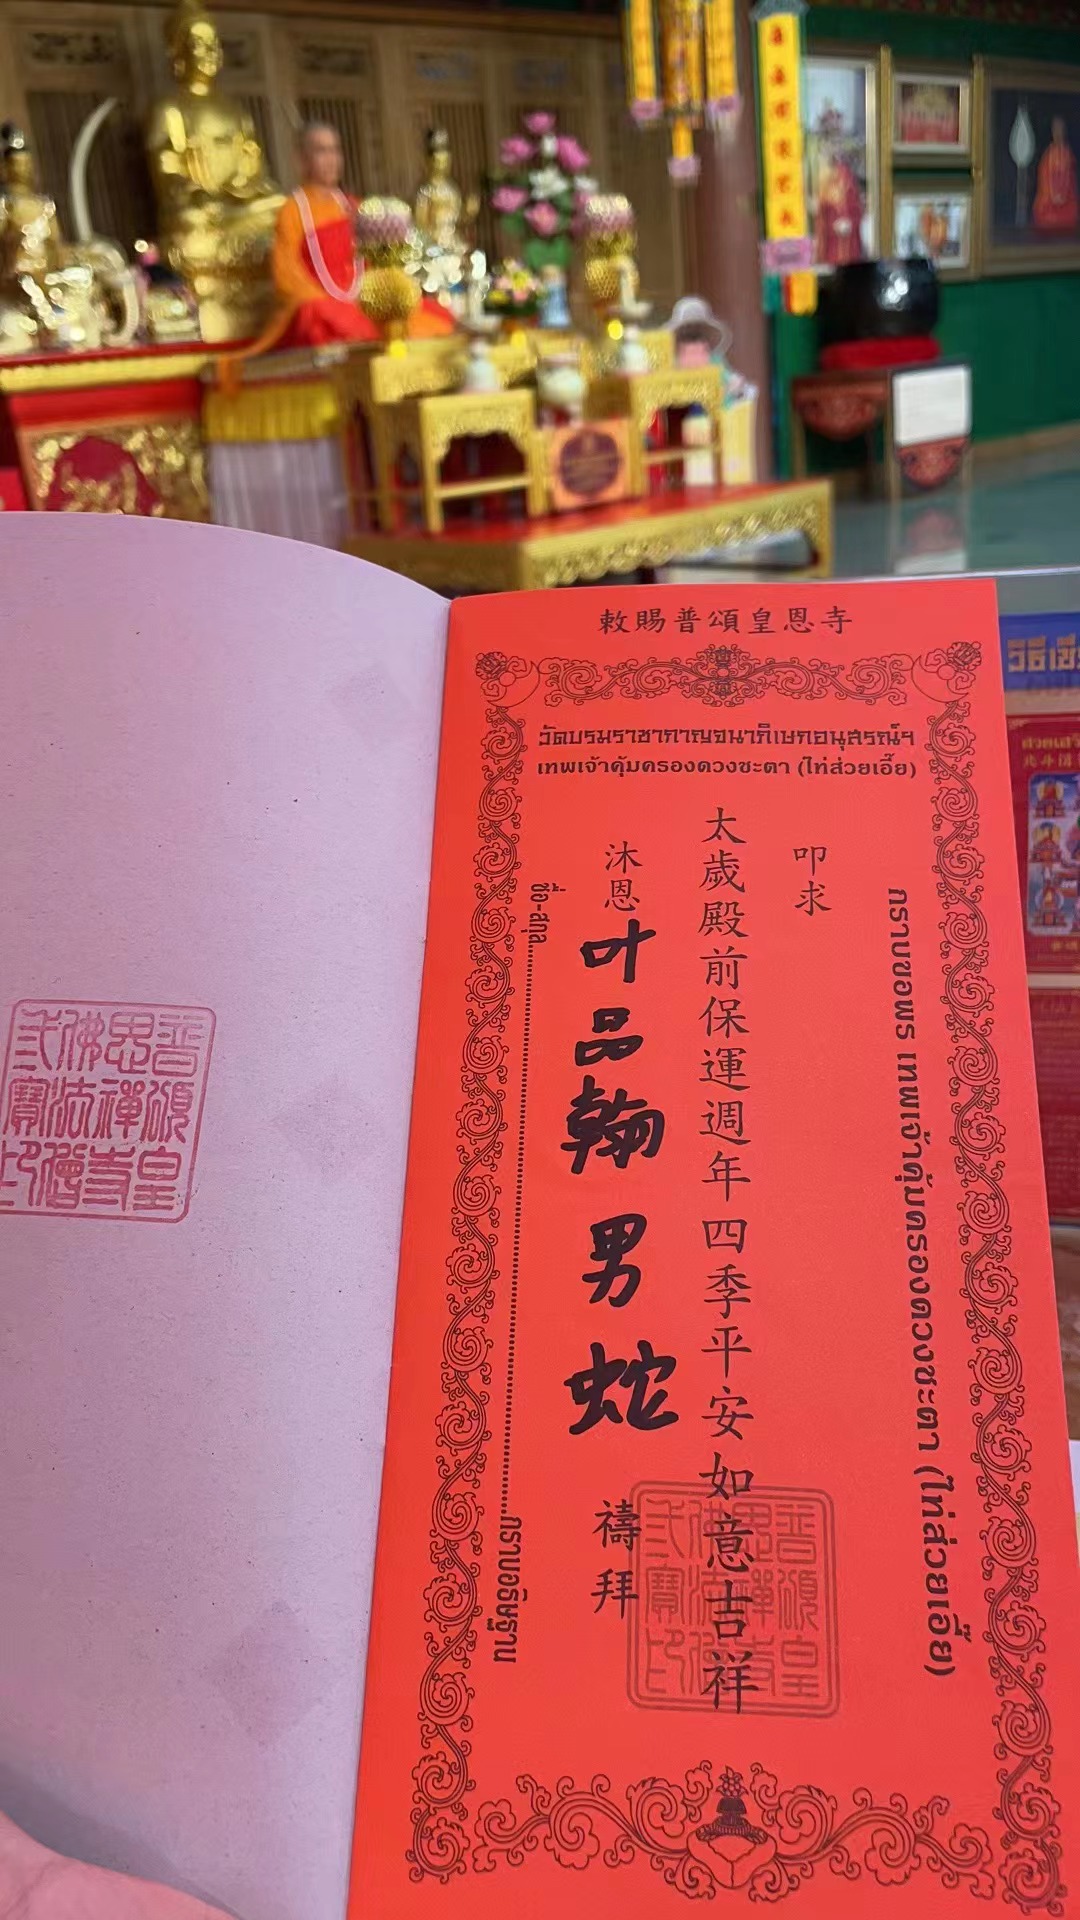 敕賜普頌皇恩寺
วัดบรมราชากาญจนาภิเษกอนุสรณ์ฯ
เทพเจ้าคุ้มครองดวงชะตา (ไท่ส่วยเอี๊ย)
กราบขอพร เทพเจ้าคุ้มครองดวงชะตา (ไท่ส่วยเอี๊ย)
叩求
太歲殿前保運週年四季平安如意吉祥
沐恩 叶品翰 男 蛇 禱拜
ชื่อ-สกุล..........กราบอธิษฐาน
普頌皇
恩禪寺
佛法僧
弎寶印
普頌皇
恩禪寺
佛法僧
弎寶印